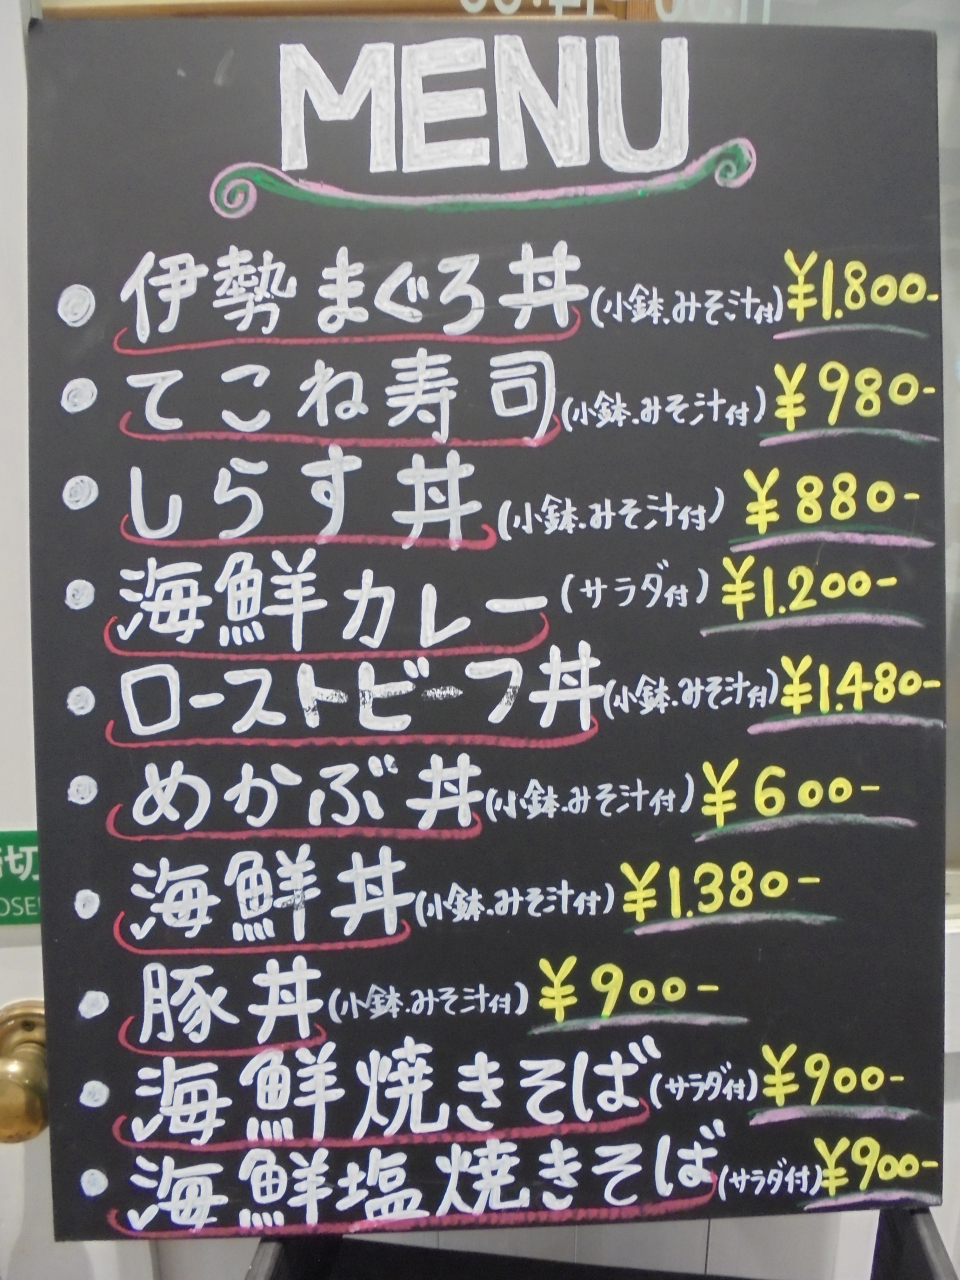 MENU
伊勢まぐろ丼(小鉢.みそ汁付)¥1.800-
てこね寿司(小鉢.みそ汁付)¥980-
しらす丼(小鉢.みそ汁付)¥880-
海鮮カレー(サラダ付)¥1.200-
ローストビーフ丼(小鉢.みそ汁付)¥1.480-
めかぶ丼(小鉢.みそ汁付)¥600-
海鮮丼(小鉢.みそ汁付)¥1.380-
豚丼(小鉢.みそ汁付)¥900-
海鮮焼きそば(サラダ付)¥900-
海鮮塩焼きそば(サラダ付)¥900-